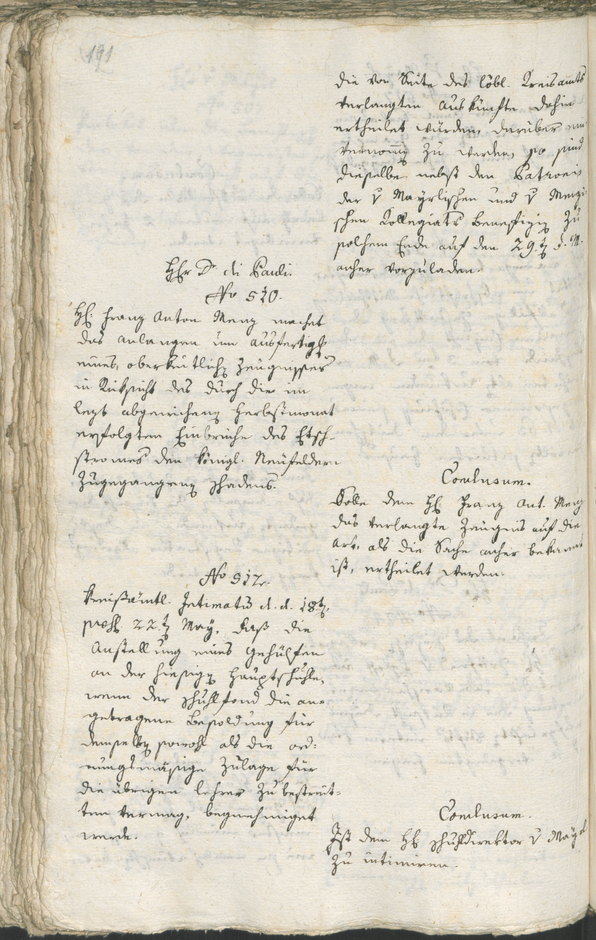 191
die von Seite des löbl. Kreisamts
verlangten Auskünfte dahin
ertheilet würden, darüber
zu werden, so sind
dieselbe nebst den Patronis
der v Mayrlischen und v Menzi-
schen Kollegiats Benefizien zu
solchem Ende auf den 29.t d. M.
anher vorzuladen.
Hr Dr. di Pauli.
No 520.
H. Franz Anton Menz machet
das Anlangen um Ausfertigung
eines obrigkeitlichen Zeugnisses
in Rücksicht des durch die im
lezt abgewichenen Herbstmonat
erfolgten Einbruche des Etsch-
stromes den königl. Neufeldern
zugegangenen Schadens.
Conclusum.
Solle dem H. Franz Ant. Menz
das verlangte Zeugnis auf die
Art, als die Sache anher bekannt
ist, ertheilet werden.
No 917.
Kreisämtl. Intimatum d. d. 18t
 22.t May, daß die
Anstellung eines Gehülfen
an der hiesigen Hauptschule,
wenn der Schulfond die an-
getragene Besoldung für
denselben sowohl als die ord-
nungsmäßige Zulage für
die übrigen Lehrer zu bestreit-
ten vermag, begnehmiget
werde.
Conclusum.
Ist dem H. Schuldirektor v Mayrl
zu intimiren.